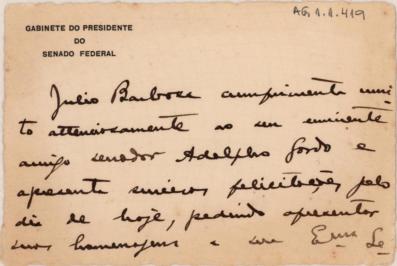 AG.1.1.419
GABINETE DO PRESIDENTE
DO
SENADO FEDERAL
Julio Barbosa cumprimenta mui-
to attenciosamente ao seu eminente
amigo senador Adolpho Gordo e
apresenta sinceras felicitações pelo
dia de hoje, pedindo apresentar
suas homenagens a sua Exma.